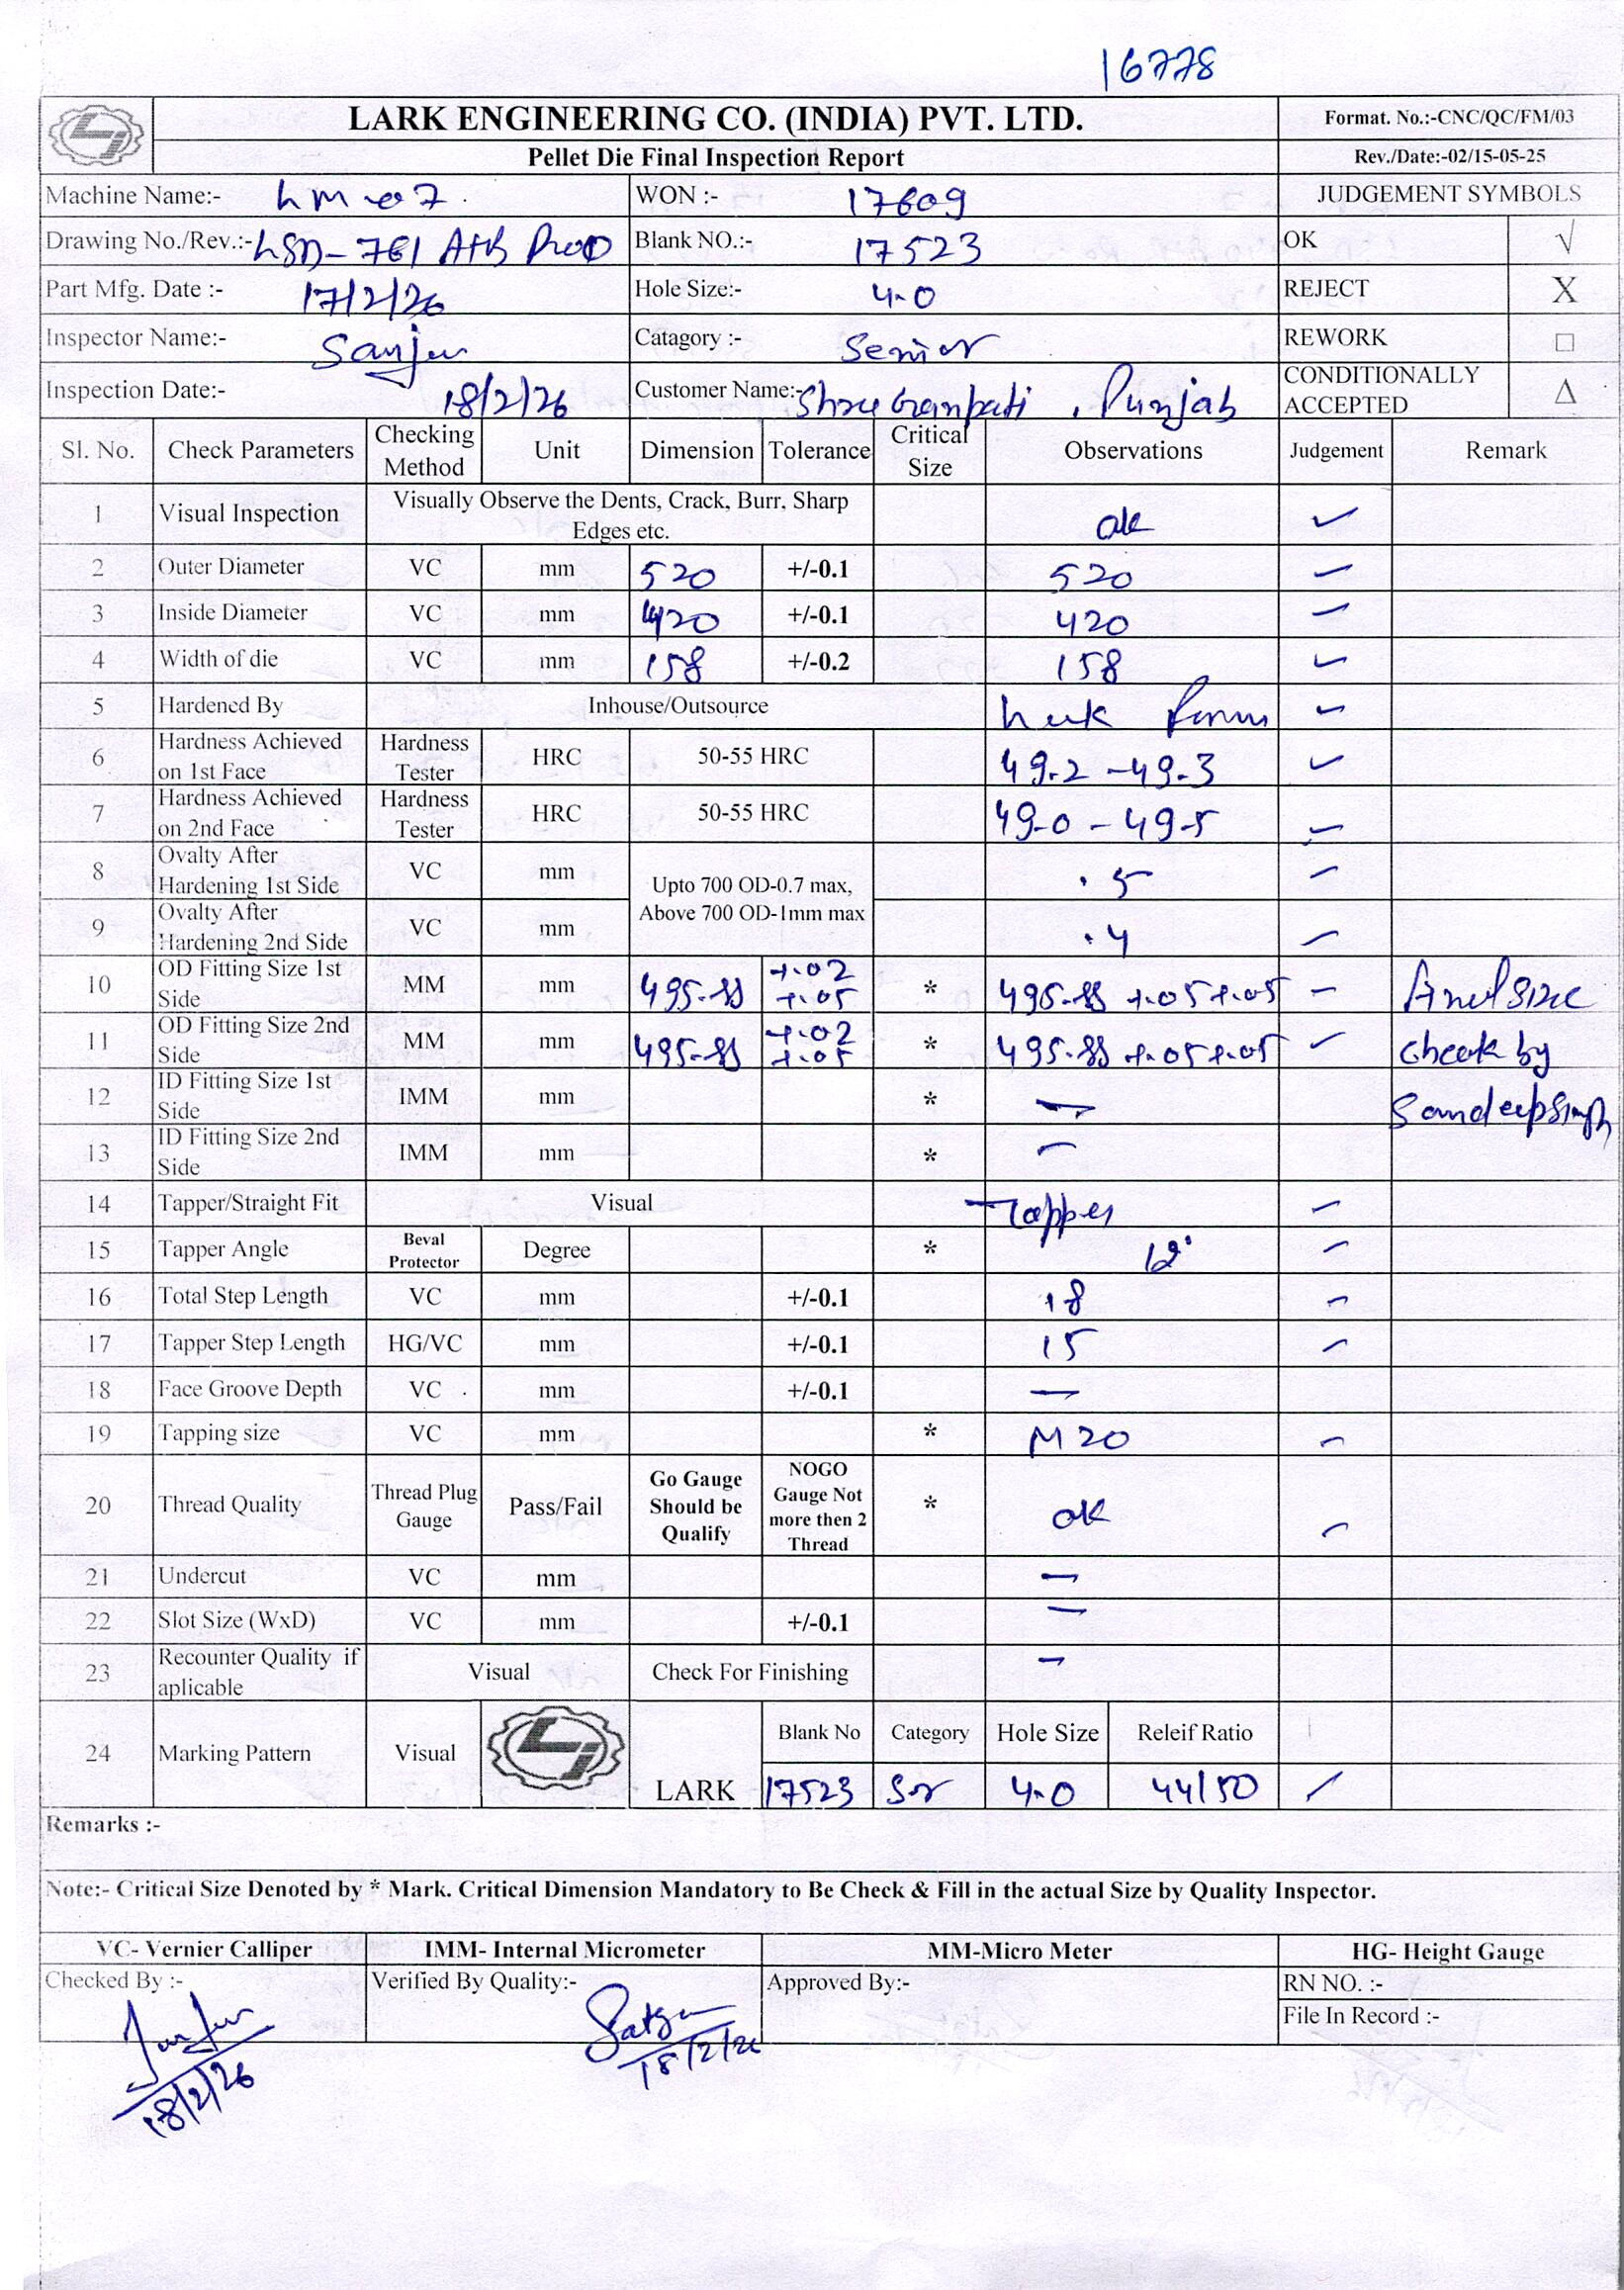 16778
LARK ENGINEERING CO. (INDIA) PVT. LTD. Format. No.:-CNC/QC/FM/03
Pellet Die Final Inspection Report Rev./Date:-02/15-05-25
Machine Name:- LM-07 WON :- 17609 JUDGEMENT SYMBOLS
Drawing No./Rev.:- LSD-761 Prod Blank NO.:- 17523 OK √
Part Mfg. Date :- 17/2/26 Hole Size:- 4.0 REJECT X
Inspector Name:- Sanju Catagory :- Senior REWORK □
Inspection Date:- 18/2/26 Customer Name:- Shree Ganpati, Punjab CONDITIONALLY ACCEPTED Δ
Sl. No. Check Parameters Checking Method Unit Dimension Tolerance Critical Size Observations Judgement Remark
1 Visual Inspection Visually Observe the Dents, Crack, Burr, Sharp Edges etc. ok ✓
2 Outer Diameter VC mm 520 +/-0.1 520 ✓
3 Inside Diameter VC mm 420 +/-0.1 420 ✓
4 Width of die VC mm 158 +/-0.2 158 ✓
5 Hardened By Inhouse/Outsource ✓
6 Hardness Achieved on 1st Face Hardness Tester HRC 50-55 HRC 49.2 - 49.3 ✓
7 Hardness Achieved on 2nd Face Hardness Tester HRC 50-55 HRC 49.0 - 49.5 ✓
8 Ovalty After Hardening 1st Side VC mm Upto 700 OD-0.7 max, Above 700 OD-1mm max .5 ✓
9 Ovalty After Hardening 2nd Side VC mm .4 ✓
10 OD Fitting Size 1st Side MM mm +.02 +.05 * +.05 +.05 ✓ Final size
11 OD Fitting Size 2nd Side MM mm +.02 +.05 * +.05 +.05 ✓ check by
12 ID Fitting Size 1st Side IMM mm * — Sandeep Singh
13 ID Fitting Size 2nd Side IMM mm * —
14 Tapper/Straight Fit Visual Tapper ✓
15 Tapper Angle Beval Protector Degree * 12° ✓
16 Total Step Length VC mm +/-0.1 18 ✓
17 Tapper Step Length HG/VC mm +/-0.1 15 ✓
18 Face Groove Depth VC mm +/-0.1 —
19 Tapping size VC mm * M20 ✓
20 Thread Quality Thread Plug Gauge Pass/Fail Go Gauge Should be Qualify NOGO Gauge Not more then 2 Thread * ok ✓
21 Undercut VC mm —
22 Slot Size (WxD) VC mm +/-0.1 —
23 Recounter Quality if aplicable Visual Check For Finishing —
24 Marking Pattern Visual LARK Blank No Category Hole Size Releif Ratio
17523 Sr 4.0 44/50 ✓
Remarks :-
Note:- Critical Size Denoted by * Mark. Critical Dimension Mandatory to Be Check & Fill in the actual Size by Quality Inspector.
VC- Vernier Calliper IMM- Internal Micrometer MM-Micro Meter HG- Height Gauge
Checked By :- Verified By Quality:- Approved By:- RN NO. :-
File In Record :-
Sanju
18/2/26
18/2/26